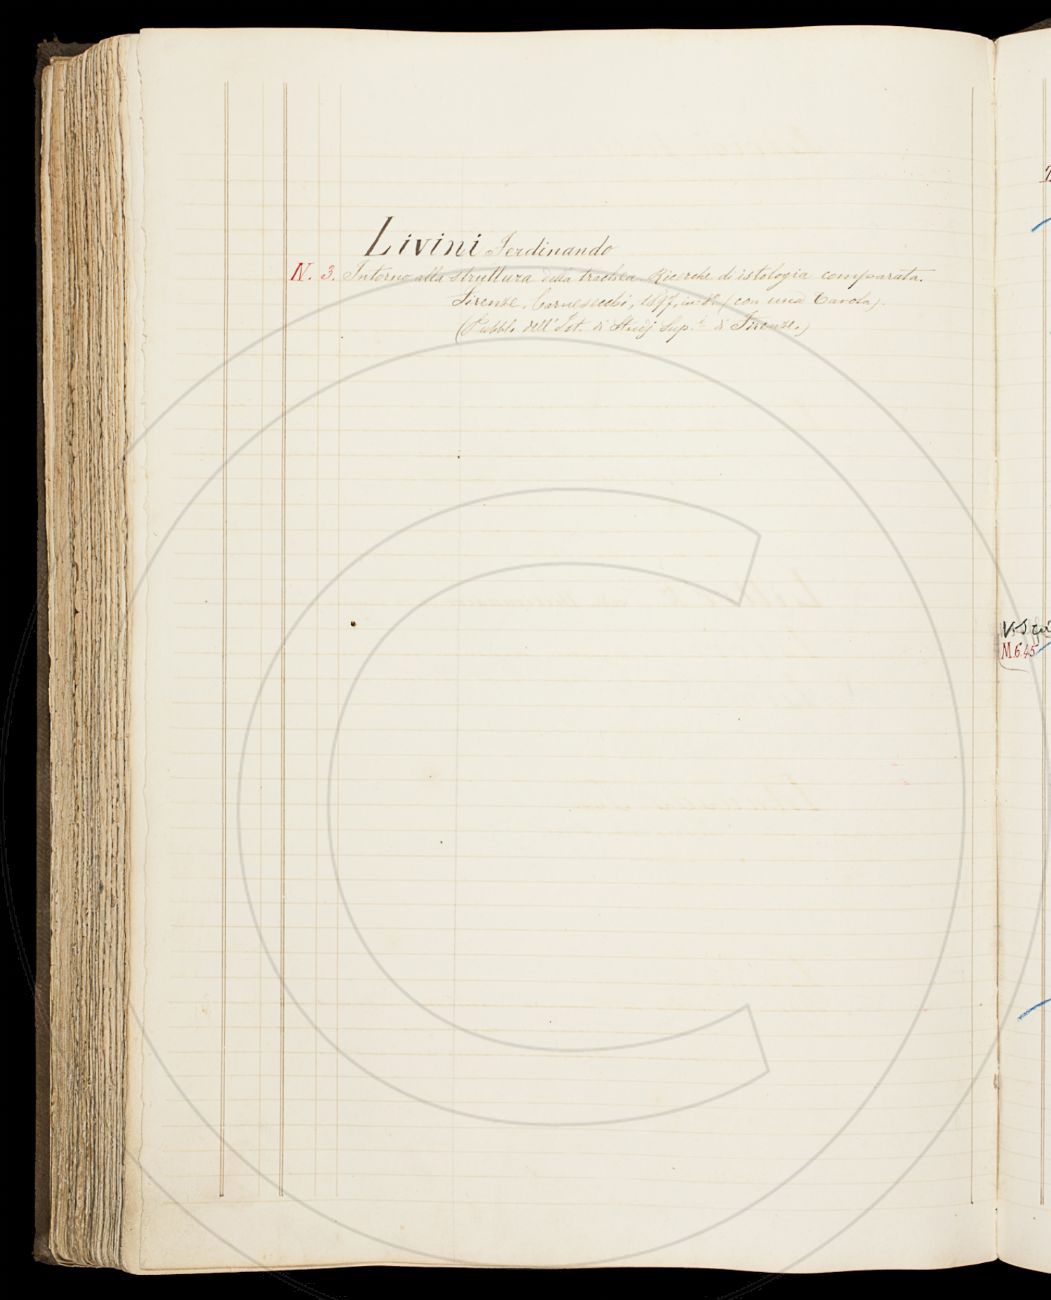 Livini Ferdinando
N. 3. Intorno alla struttura della trachea. Ricerche d'istologia comparata.
Firenze, Carnesecchi, 1897, in-8. (con una Tavola).
(Pubbl. dell'Ist. di Studj Sup. di Firenze.)
M 6.45